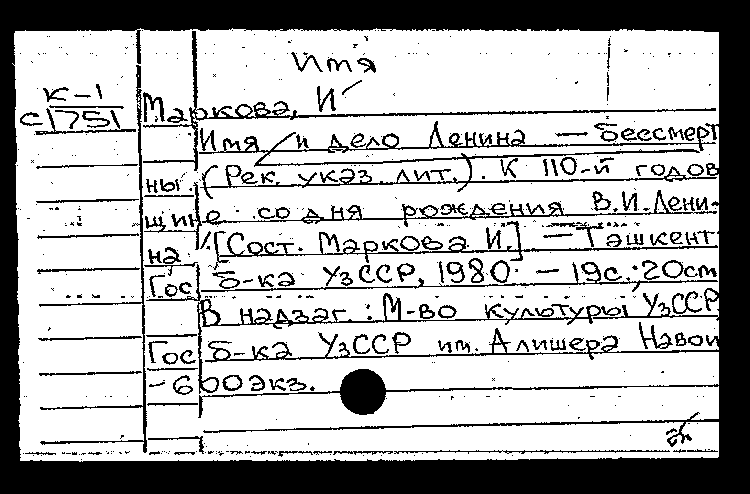 Имя
К-1
с1751
Маркова, И
Имя и дело Ленина — бессмерт
ны (Рек. указ. лит.). К 110-й годов
щине со дня рождения В.И. Лени-
на /[Сост. Маркова И.] — Ташкент
Гос б-ка УзССР, 1980 — 19с.; 20см
В надзаг.: М-во культуры УзССР
Гос б-ка УзССР им. Алишера Навои
- 600экз.